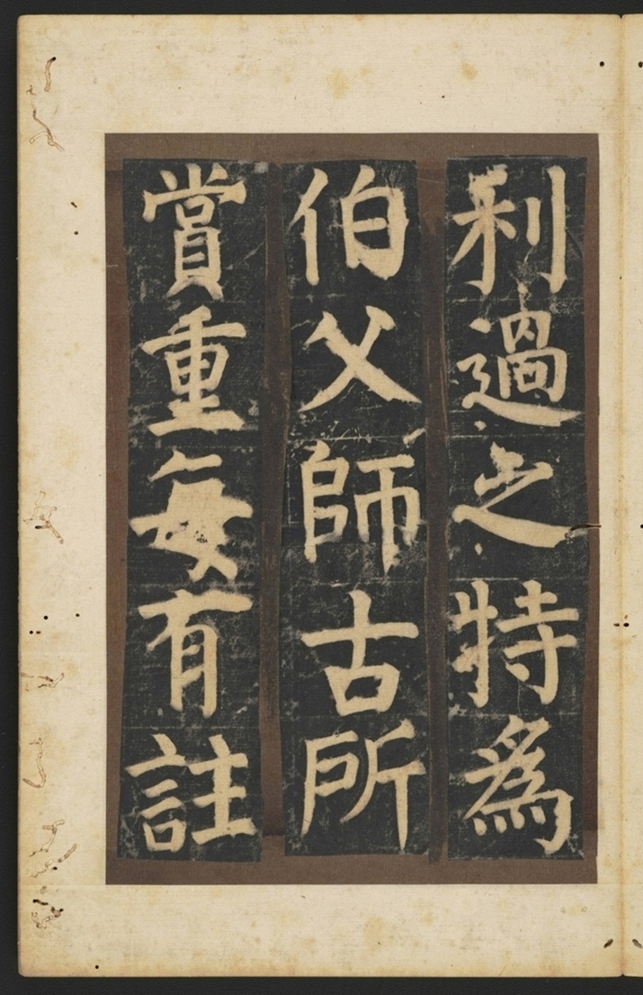 利過之特為
伯父師古所
賞重每有註